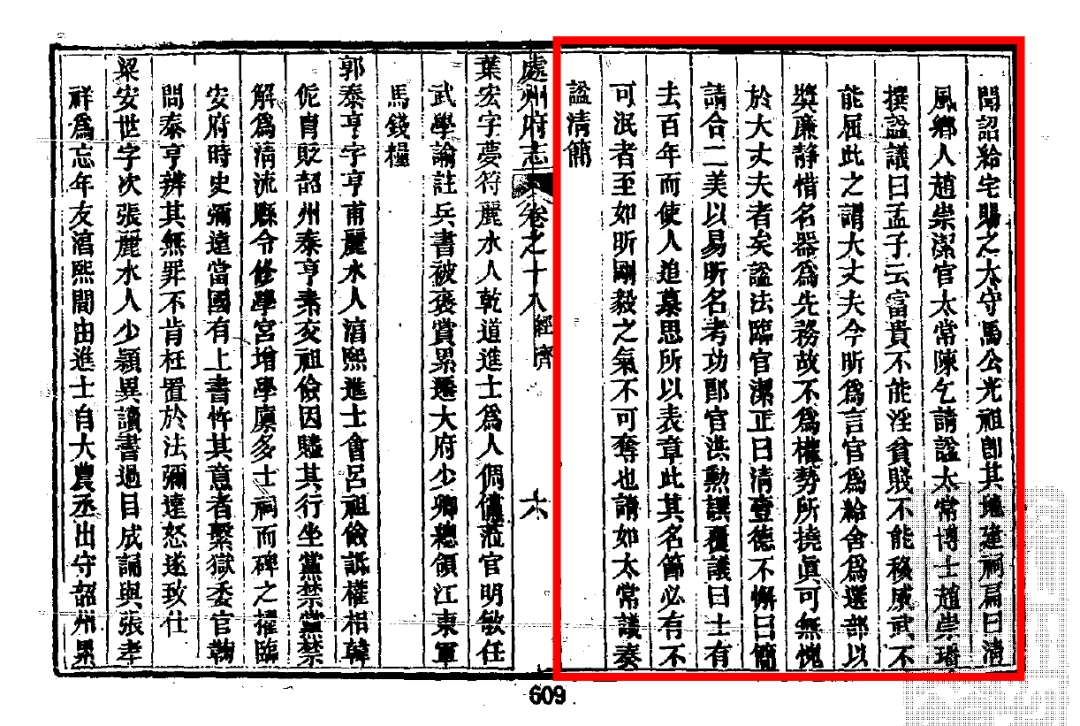 聞詔給宅賜之太守馬公光祖卽其地建祠扁曰淸
風鄉人趙崇潔官太常陳乞請謚太常博士趙崇璠
撰謚議曰孟子云富貴不能淫貧賤不能移威武不
能屈此之謂大丈夫今昕爲言官爲給舍爲選部以
獎廉靜惜名器爲先務故不爲權勢所撓眞可無愧
於大丈夫者矣謚法臨官潔正曰清壹德不懈曰簡
請合二美以易昕名考功郞官洪勳譔覆議曰士有
去百年而使人追慕思所以表章此其名節必有不
可泯者至如昕剛毅之氣不可奪也請如太常議奏
謚淸簡
處州府志 卷之十八 經濟 十六
葉宏字夢符麗水人乾道進士爲人倜儻蒞官明敏任
武學諭註兵書被褒賞累遷大府少卿總領江東軍
馬錢糧
郭泰亨字亨甫麗水人淳熙進士會呂祖儉詆權相韓
侂胄貶韶州泰亨素交祖儉因贐其行坐黨禁黨禁
解爲淸流縣令修學宮增學廩多士祠而碑之擢臨
安府時史彌遠當國有上書忤其意者繫獄委官鞫
問泰亨辨其無罪不肯枉置於法彌遠怒遂致仕
梁安世字次張麗水人少穎異讀書過目成誦與張孝
祥爲忘年友淳熙間由進士自大農丞出守韶州累
609